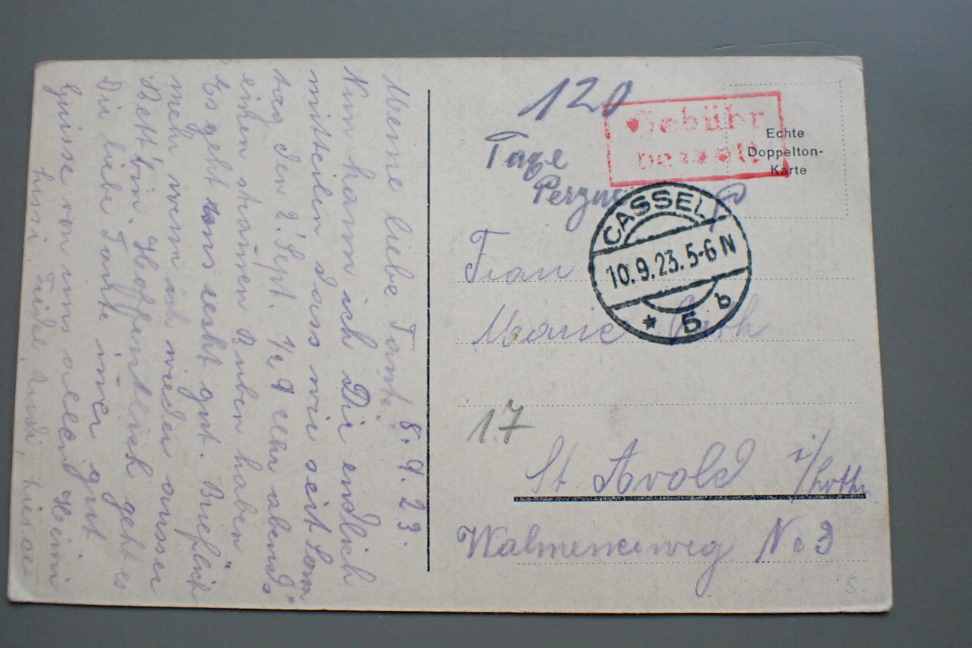 8. 9. 23.
Meine liebe Tante!
Nun kann ich Dir endlich
mitteilen dass wir seit Sonn-
tag den 2. Sept. 1/2 9 Uhr abends
einen strammen Buben haben
Es geht uns recht gut. Brieflich
mehr wenn ich wieder ausser
Bett bin. Hoffentlich geht es
Dir liebe Tante immer gut
Grüsse von uns allen Heini
120
Gebühr
bezahlt
Echte
Doppelton-
Karte
Tage
CASSEL
10.9.23.5-6 N
* 5 b
Frau
17
St Avold i/Lothr.
No 3